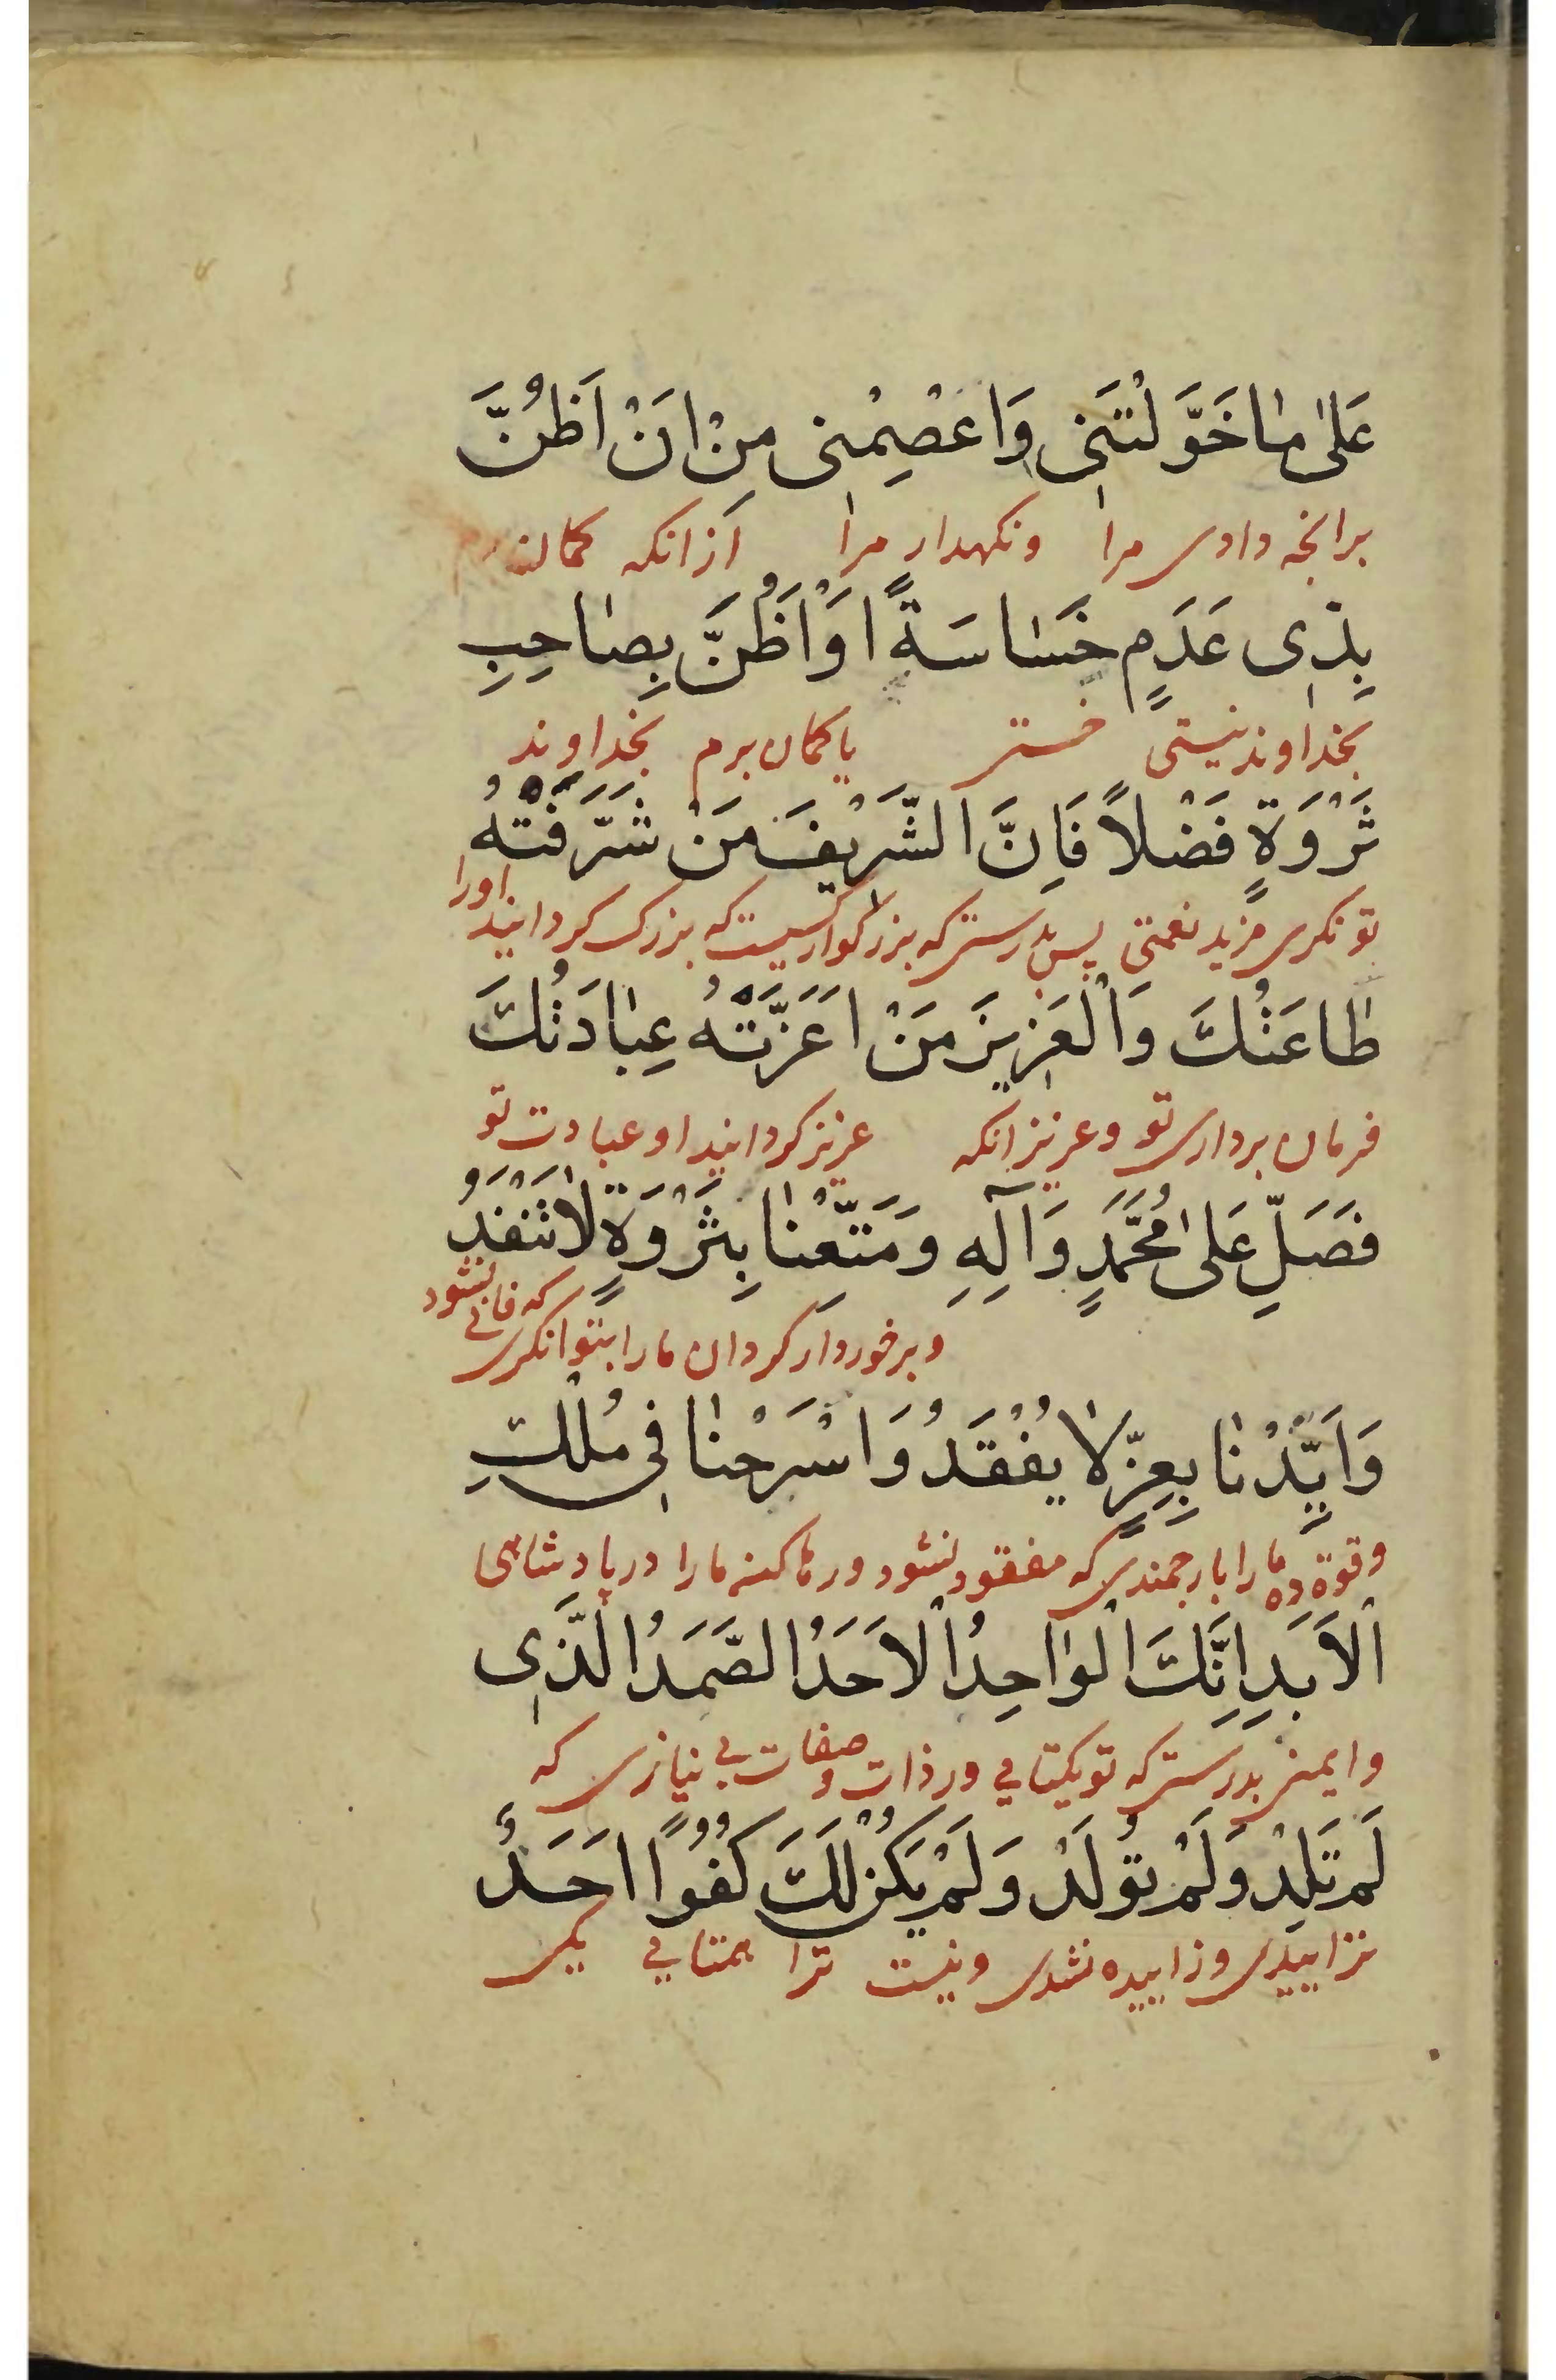 عَلىٰ مٰا خَوَّلْتَنِى وَاعْصِمْنِى مِنْ اَنْ اَظُنَّ
برانچه دادی مرا ونکهدار مرا ازانکه کمان
بِذِى عَدَمٍ خَسٰاسَةً اَوْ اَظُنَّ بِصٰاحِبِ
بخداوند نیستی خستی یا کمان برم بخداوند
ثَرْوَةٍ فَضْلاً فَاِنَّ الشَّرِيفَ مَنْ شَرَّفَتْهُ
تونکری مزید نعمتی پس بدرستیکه بزرکوار کسیست که بزرک کردانید اورا
طٰاعَتُكَ وَالْعَزِيزَ مَنْ اَعَزَّتْهُ عِبٰادَتُكَ
فرمان برداری تو وعزیز انکه عزیز کردانید او عبادت تو
فَصَلِّ عَلىٰ مُحَمَّدٍ وَآلِهِ وَمَتِّعْنٰا بِثَرْوَةٍ لاٰتَنْفَدُ
وبرخوردار کردان مارا بتوانکری که فانی نشود
وَاَيِّدْنٰا بِعِزٍّ لاٰ يُفْقَدُ وَاسْرَحْنٰا فِى مُلْكِ
وقوة ده مارا بارجمندی که مفقود نشود ورها کن مارا در پادشاهی
الْاَبَدِ اِنَّكَ الْوٰاحِدُ الْاَحَدُ الصَّمَدُ الَّذِى
وایمنی بدرستیکه تو یکتایی در ذات و صفات بی نیازی که
لَمْ تَلِدْ وَلَمْ تُولَدْ وَلَمْ يَكُنْ لَكَ كُفُوًا اَحَدٌ
نزاییدی وزاییده نشدی ونیست ترا همتایی یکی